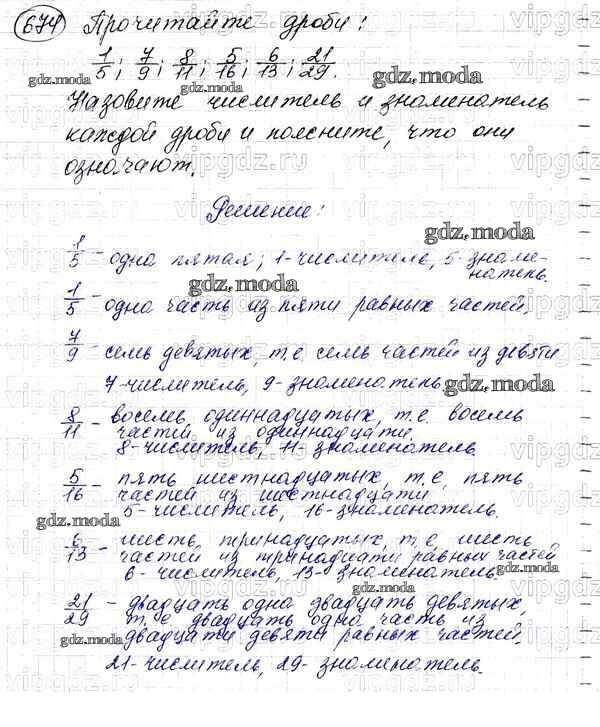 674 Прочитайте дроби:
1/5; 7/9; 8/11; 5/16; 6/13; 21/29.
Назовите числитель и знаменатель
каждой дроби и поясните, что они
означают.
Решение:
1/5 - одна пятая; 1-числитель, 5-знаме-
натель.
1/5 - одна часть из пяти равных частей.
7/9 - семь девятых, т.е. семь частей из девяти
7-числитель, 9-знаменатель
8/11 - восемь одиннадцатых, т.е. восемь
частей из одиннадцати.
8-числитель, 11-знаменатель
5/16 - пять шестнадцатых, т.е. пять
частей из шестнадцати
5-числитель, 16-знаменатель.
6/13 - шесть тринадцатых, т.е. шесть
частей из тринадцати равных частей
6-числитель, 13-знаменатель.
21/29 - двадцать одна двадцать девятых,
т.е. двадцать одна часть из
двадцати девяти равных частей.
21-числитель, 29-знаменатель.
gdz.moda
gdz.moda
gdz.moda
gdz.moda
gdz.moda
gdz.moda
gdz.moda
gdz.moda
gdz.moda
vipgdz.ru